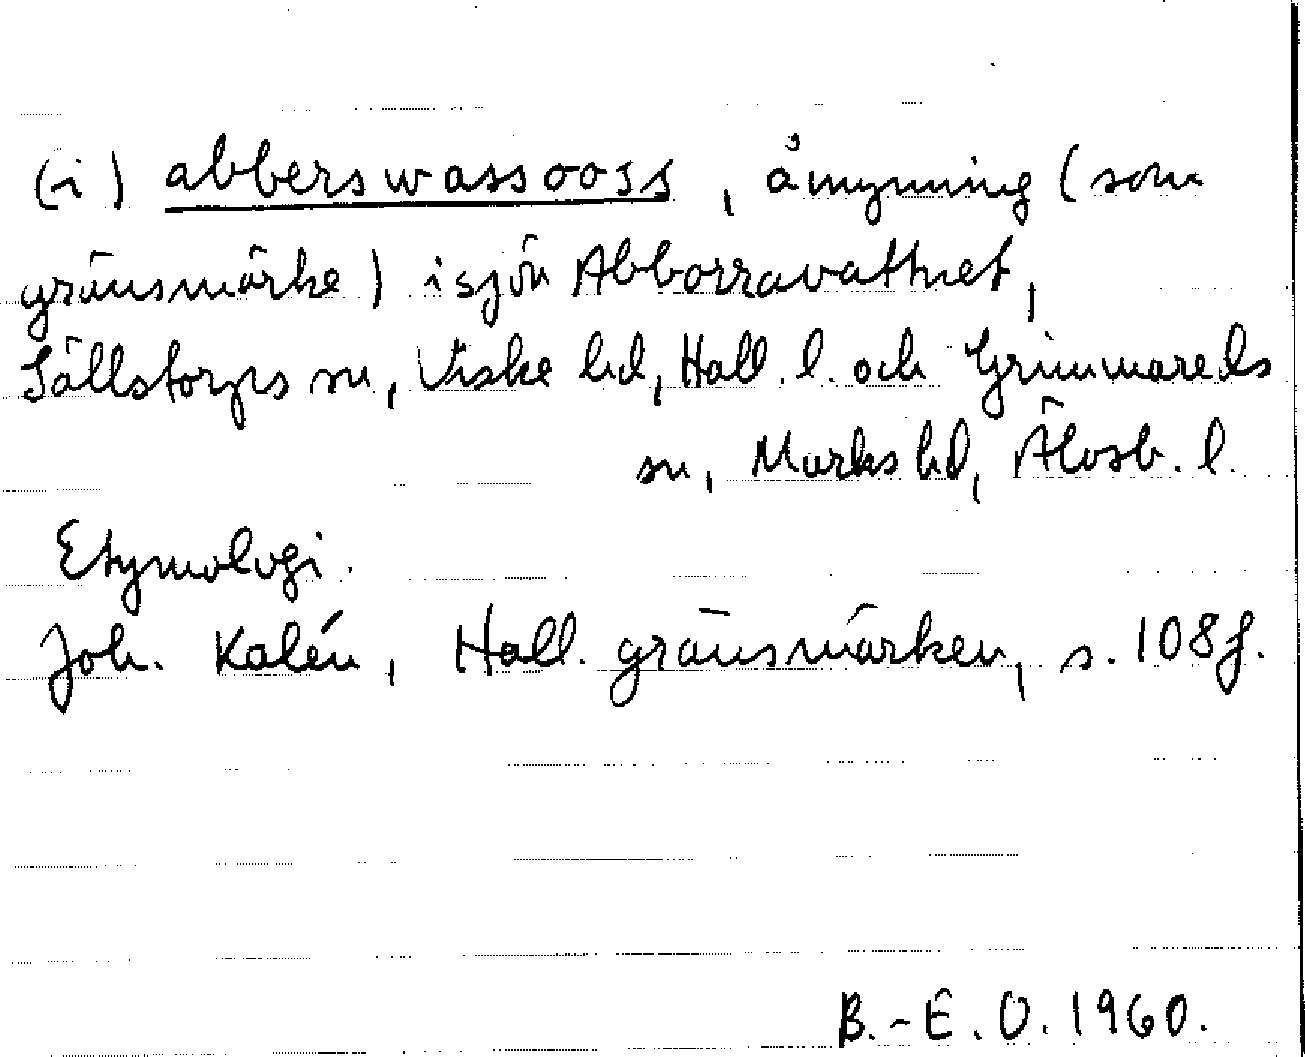 (i) abberswassooss, åmynning (som
gränsmärke) i sjön Abborravattnet,
Sällstorps sn, Viske hd, Hall. l. och Grimmareds
sn, Marks hd, Älvsb. l.
Etymologi.
Joh. Kalén, Hall. gränsmärken, s. 108f.
B.-E. O. 1960.